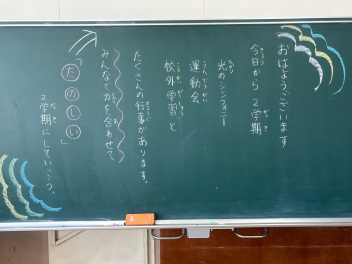 おはようございます。
今日から2学期
光のシンフォニー
運動会
校外学習と
たくさんの行事があります。
みんなで力を合わせて、
「たのしい」
2学期にしていこう。